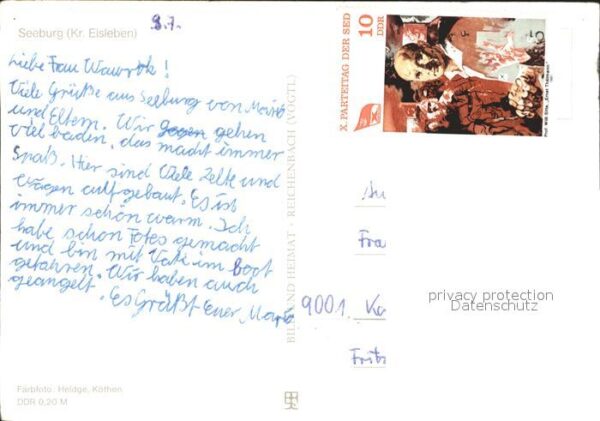 Seeburg (Kr. Eisleben)
9.7.
Liebe Frau Wawrok!
Viele Grüße aus Seeburg von Mario
und Eltern. Wir gehen
viel baden, das macht immer
Spaß. Hier sind viele Zelte und
Wagen aufgebaut. Es ist
immer schön warm. Ich
habe schon Fotos gemacht
und bin mit Vati im Boot
gefahren. Wir haben auch
geangelt. Es Grüßt Euer, Mario
Farbfoto: Heldge, Köthen
DDR 0,20 M
BILD UND HEIMAT · REICHENBACH (VOGTL)
X. PARTEITAG DER SED
10
DDR
An
Fra
9001 Ka
Fritz
privacy protection
Datenschutz